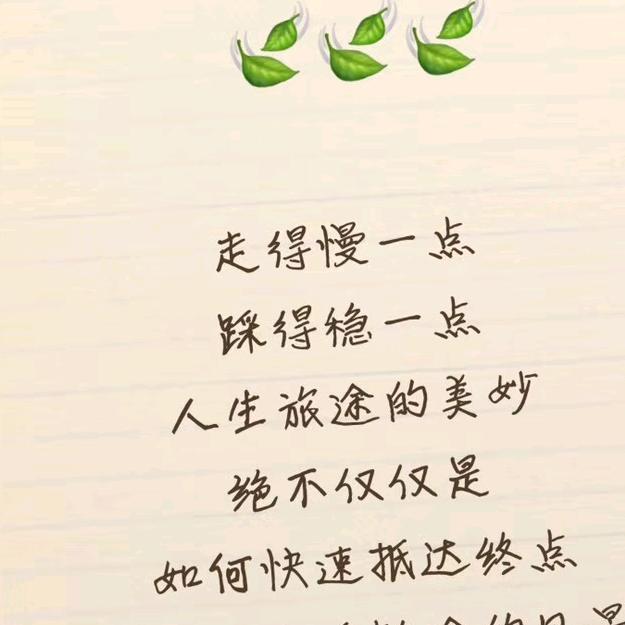 走得慢一点
踩得稳一点
人生旅途的美妙
绝不仅仅是
如何快速抵达终点